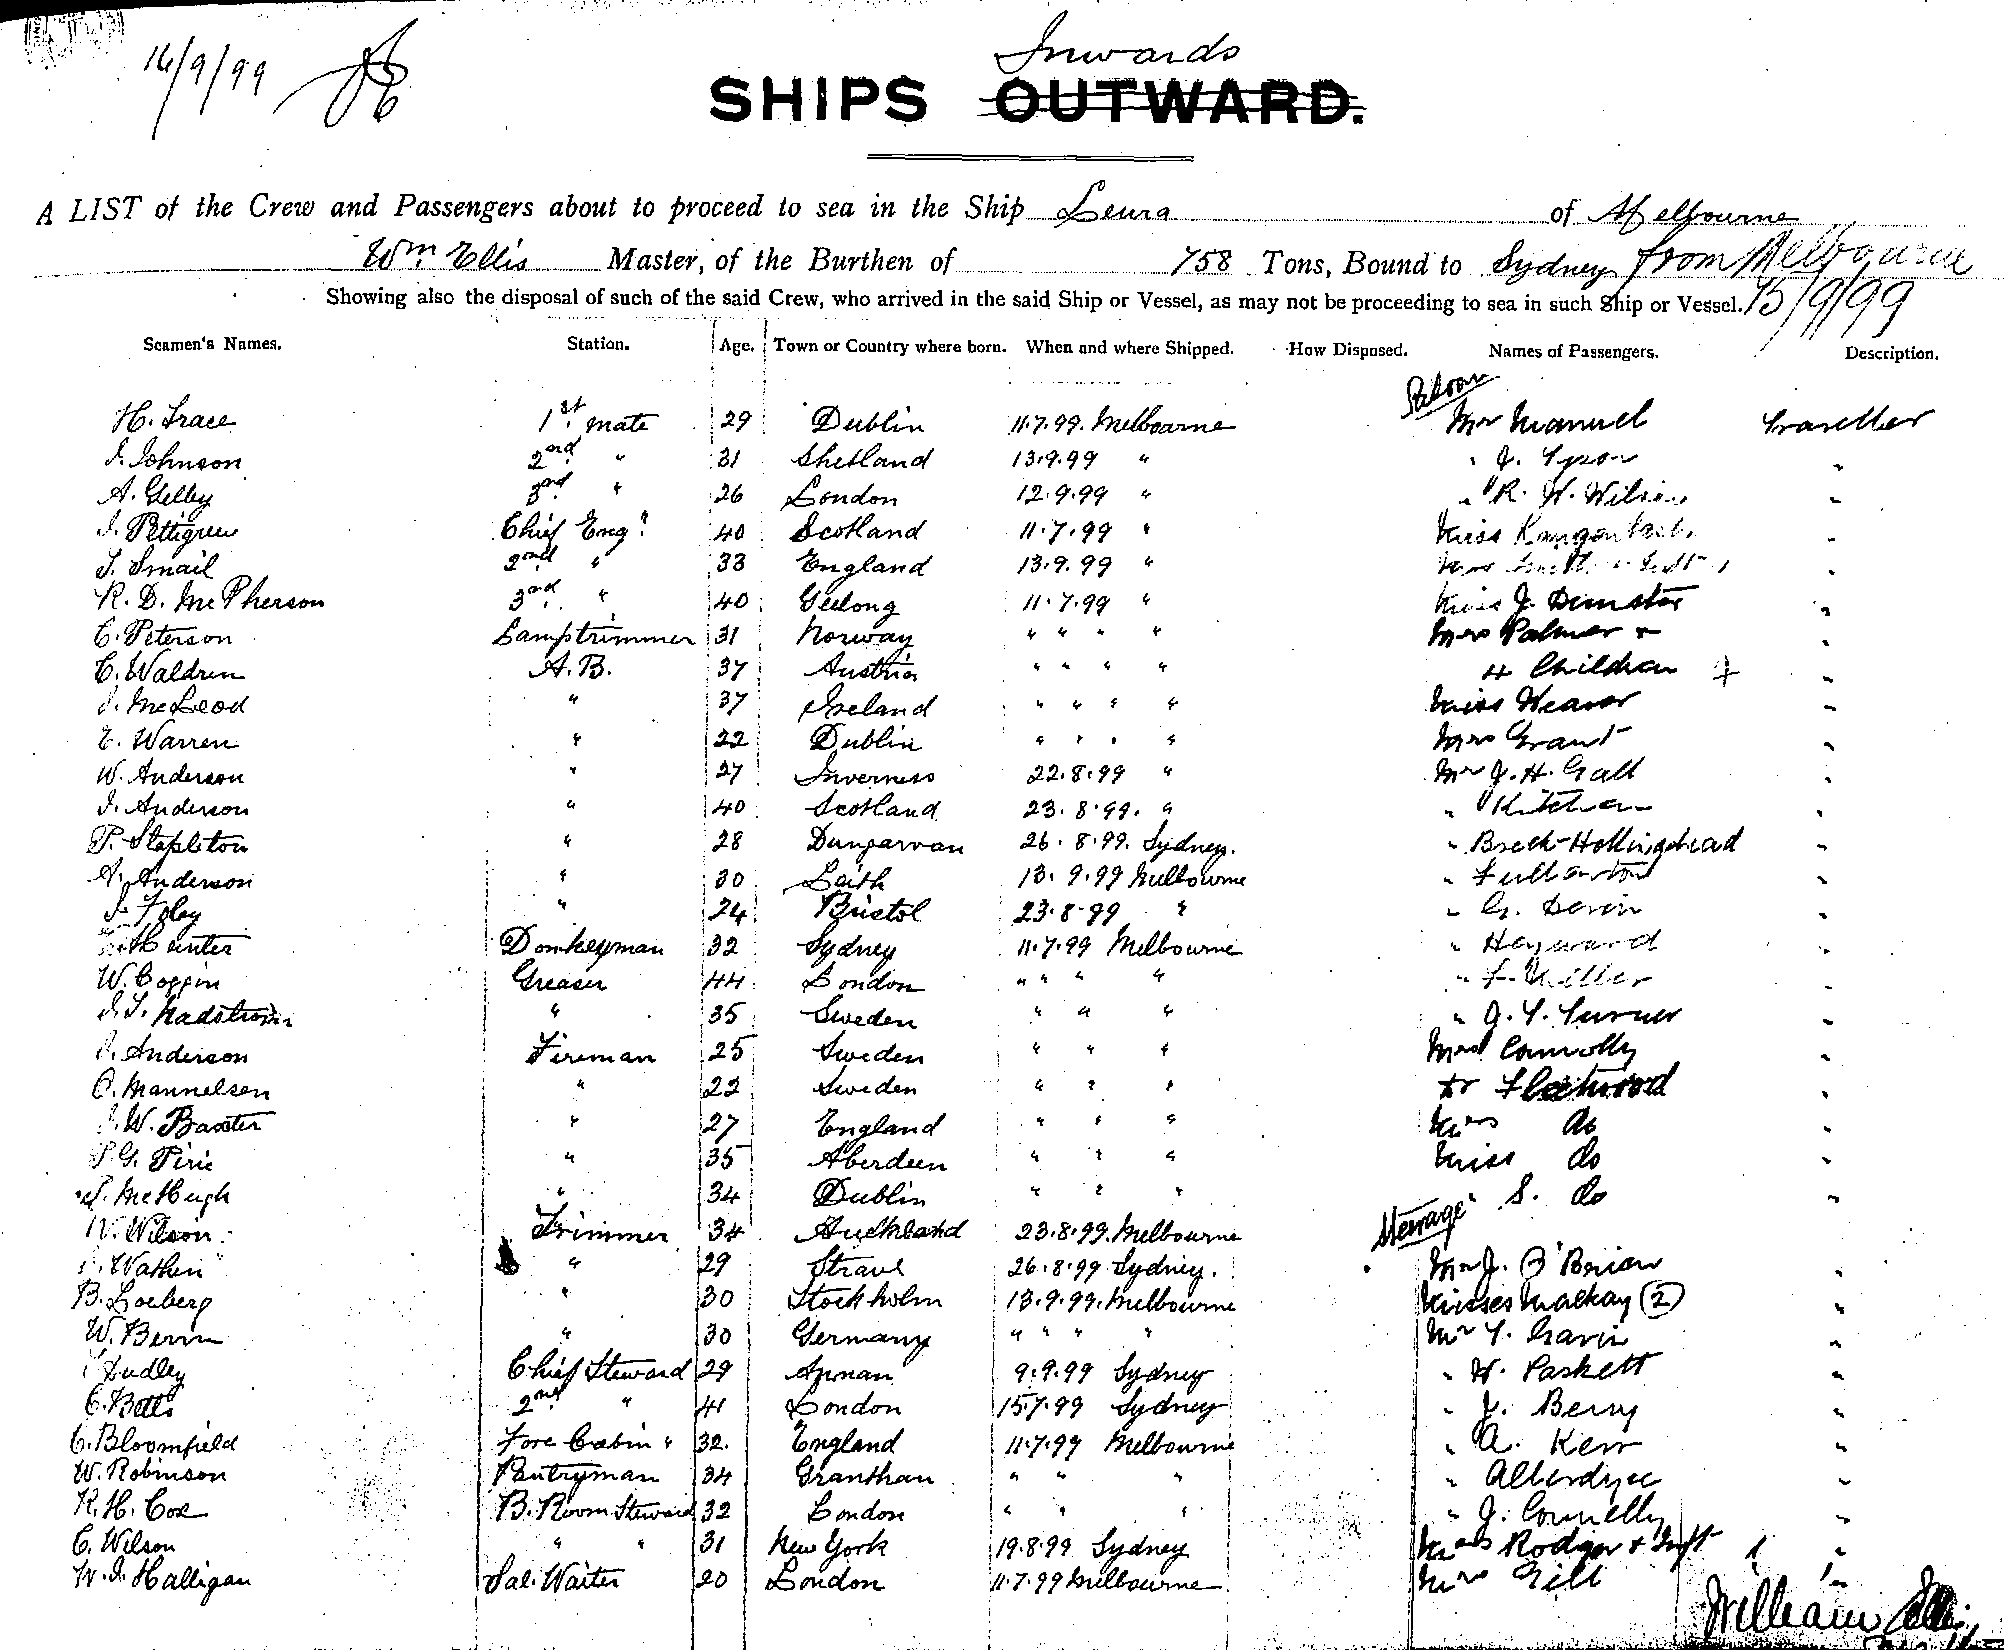 16/9/99
Inwards
SHIPS OUTWARD.
A LIST of the Crew and Passengers about to proceed to sea in the Ship Leura of Melbourne
Wm Ellis Master, of the Burthen of 758 Tons, Bound to Sydney from Melbourne
Showing also the disposal of such of the said Crew, who arrived in the said Ship or Vessel, as may not be proceeding to sea in such Ship or Vessel. 15/9/99
Seamen's Names. Station. Age. Town or Country where born. When and where Shipped. How Disposed. Names of Passengers. Description.
Saloon
H. Grace 1st mate 29 Dublin 11.7.99. Melbourne Mr Manuel Traveller
J. Johnson 2nd " 31 Shetland 13.9.99 " " J. Tyson "
A. Gelby 3rd " 26 London 12.9.99 " " R. H. Wilson "
J. Pettigrew Chief Engr 40 Scotland 11.7.99 " Miss "
J. Smail 2nd " 33 England 13.9.99 " Mrs "
R. D. McPherson 3rd " 40 Geelong 11.7.99 " Miss J. Dunster "
C. Peterson Lamptrimmer 31 Norway " " " " Mrs Palmer + "
C. Waldren A.B. 37 Austria " " " " 4 Children "
J. McLeod " 37 Ireland " " " " Miss Weaver "
E. Warren " 22 Dublin " " " " Mrs Grant "
W. Anderson " 27 Inverness 22.8.99 " Mr J. H. Gall "
J. Anderson " 40 Scotland 23.8.99. " " Kitchen "
P. Stapleton " 28 Dungarvan 26.8.99. Sydney. " Breck-Hollingshead "
A. Anderson " 30 Leith 13.9.99 Melbourne " Fullarton "
J. Foley " 24 Bristol 23.8.99 " " G. Devin "
Hunter Donkeyman 32 Sydney 11.7.99 Melbourne " Heyward "
W. Coppin Greaser 44 London " " " " " F. Miller "
J. F. Nadstrom " 35 Sweden " " " " J. Y. Turner "
J. Anderson Fireman 25 Sweden " " " Mrs Connolly "
C. Mannelsen " 22 Sweden " " " Dr Fleetwood "
J. W. Baxter " 27 England " " " Mrs do "
P. G. Pirie " 35 Aberdeen " " " Miss do "
J. McHugh " 34 Dublin " " " " S. do "
Steerage
W. Wilson Trimmer 34 Auckland 23.8.99. Melbourne
Wathen " 29 26.8.99 Sydney. Mr J. O'Brien "
B. Loeberg " 30 Stockholm 13.9.99. Melbourne Misses Mackay (2) "
W. Berrin " 30 Germany " " " " Mr T. Gavin "
Dudley Chief Steward 29 Annan 9.9.99 Sydney " H. Paskett "
C. Betts 2nd " 41 London 15.7.99 Sydney " J. Berry "
C. Bloomfield Fore Cabin " 32. England 11.7.99 Melbourne " A. Kerr "
W. Robinson Pantryman 34 Granthan " " " " "
R. H. Cox B. Room Steward 32 London " " " " J. Connelly "
C. Wilson " " 31 New York 19.8.99 Sydney Mrs Rodger + Inft 1 "
W. J. Halligan Sal. Waiter 20 London 11.7.99 Melbourne Mrs Gill "
William Ellis